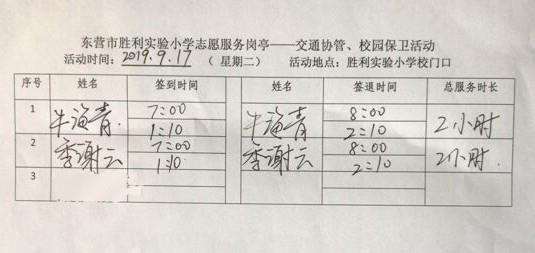 东营市胜利实验小学志愿服务岗亭——交通协管、校园保卫活动
活动时间：2019.9.17 （ 星期二） 活动地点：胜利实验小学校门口
序号 姓名 签到时间 姓名 签退时间 总服务时长
1 牛海青. 7:00 牛海青 8:00 2小时
1:10 2:10
2 季谢云 7:00 季谢云 8:00 2小时.
1:10 2:10
3